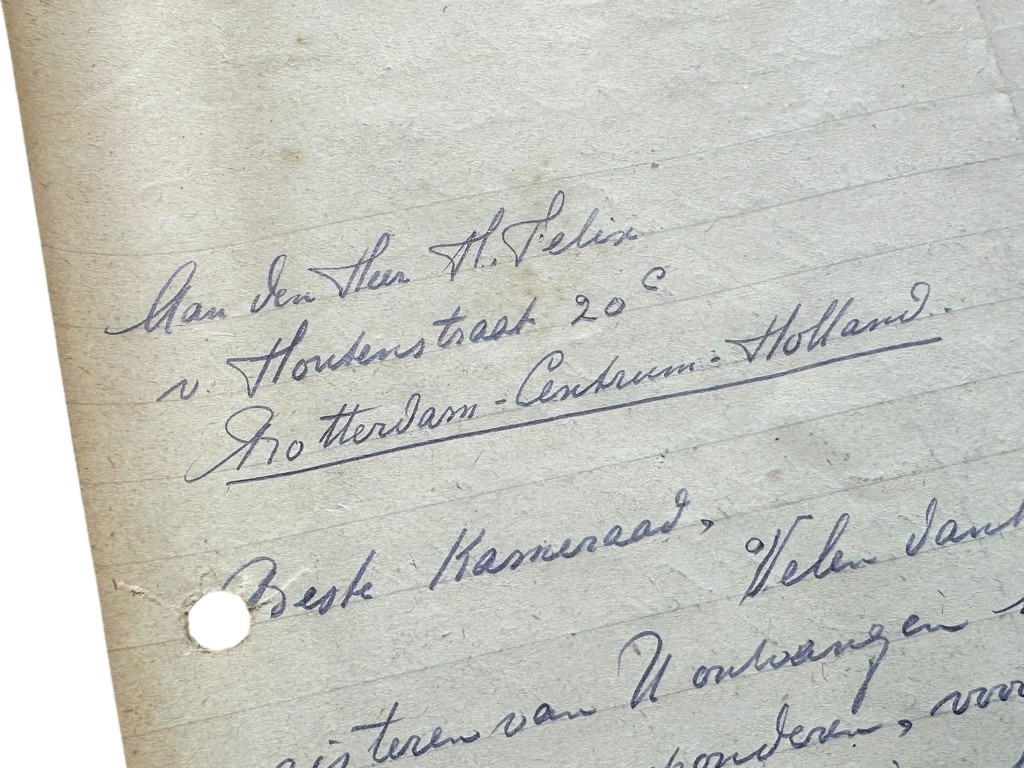 Aan den Heer H. Felix
v. Houtenstraat 20 c
Rotterdam - Centrum - Holland.
Beste Kameraad,
Velen dank
gisteren van U ontvangen
voor